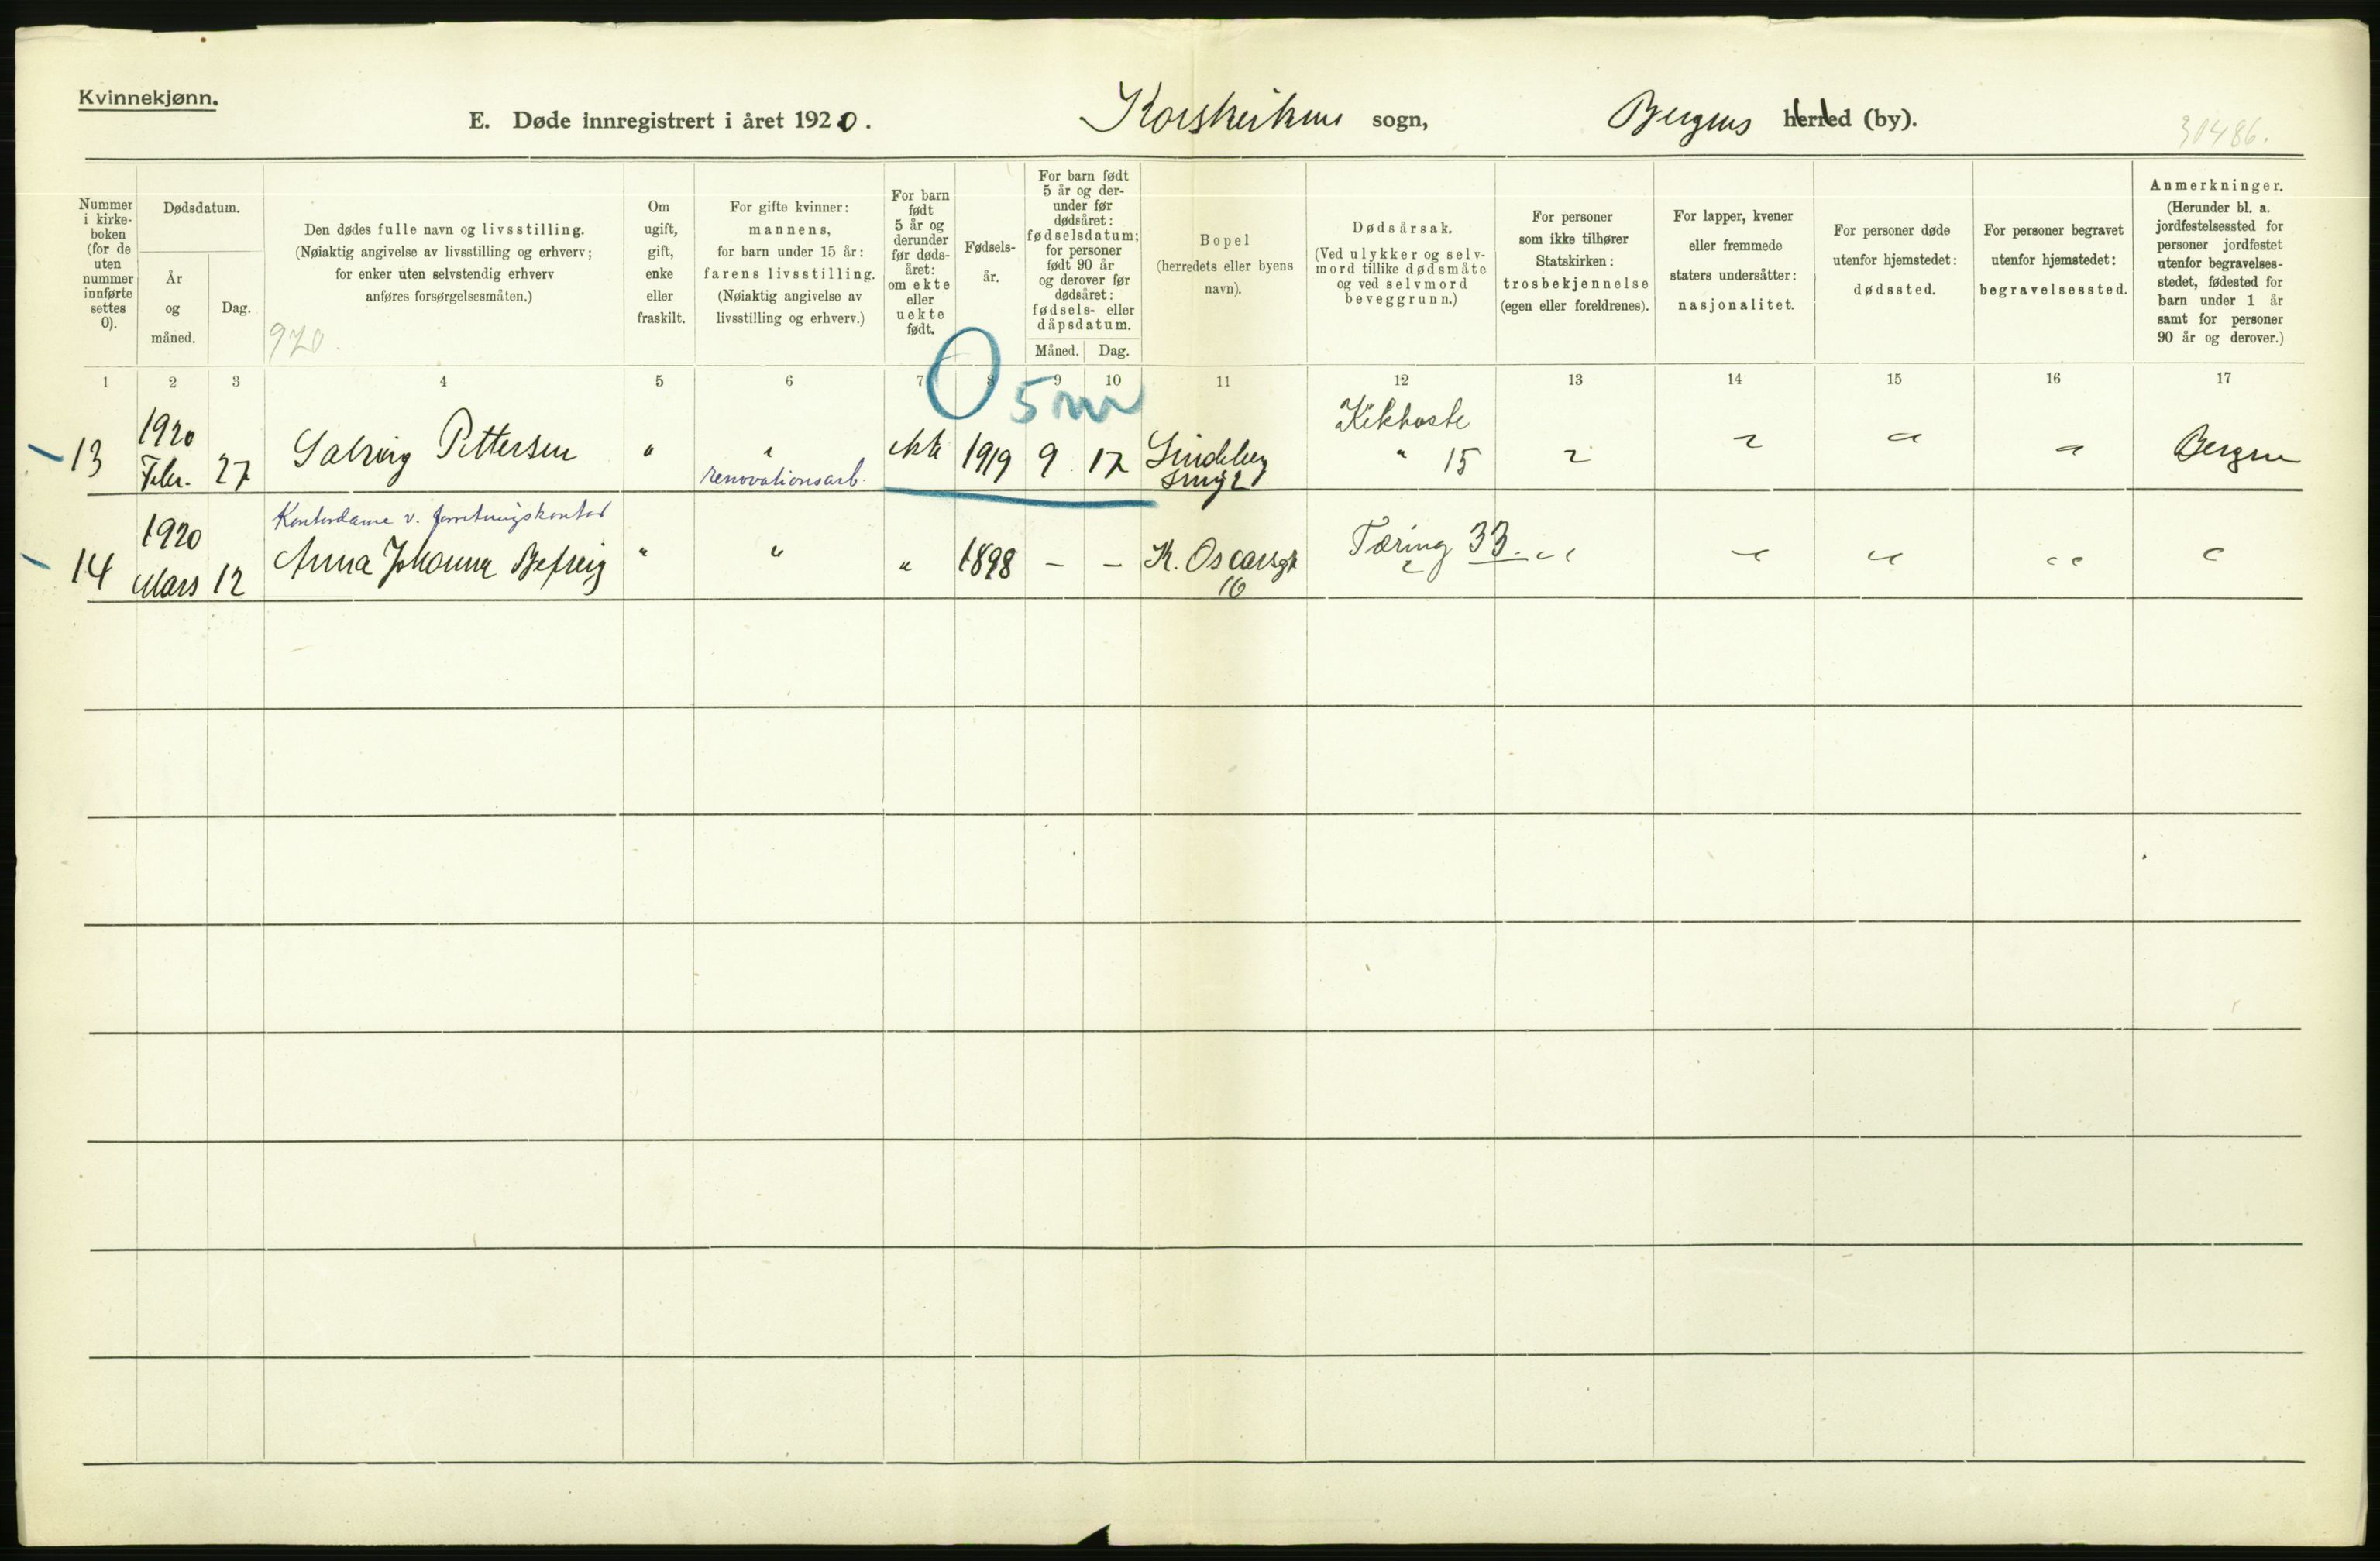 Kvinnekjønn.
E. Døde innregistrert i året 1920. Korskirkens sogn, Bergens herred (by).
30486.
Nummer i kirke-boken (for de uten nummer innførte settes 0).
Dødsdatum.
År og måned.
Dag.
Den dødes fulle navn og livsstilling.
(Nøiaktig angivelse av livsstilling og erhverv;
for enker uten selvstendig erhverv
anføres forsørgelsesmåten.)
920.
Om
ugift,
gift,
enke
eller
fraskilt.
For gifte kvinner:
mannens,
for barn under 15 år:
farens livsstilling.
(Nøiaktig angivelse av
livsstilling og erhverv.)
For barn
født
5 år og
derunder
før døds-
året:
om ekte
eller
uekte
født.
Fødsels-
år.
For barn født
5 år og der-
under før
dødsåret:
fødselsdatum;
for personer
født 90 år
og derover før
dødsåret:
fødsels- eller
dåpsdatum.
Måned. Dag.
Bopel
(herredets eller byens
navn).
Dødsårsak.
(Ved ulykker og selv-
mord tillike dødsmåte
og ved selvmord
beveggrunn.)
For personer
som ikke tilhører
Statskirken:
trosbekjennelse
(egen eller foreldrenes).
For lapper, kvener
eller fremmede
staters undersåtter:
nasjonalitet.
For personer døde
utenfor hjemstedet:
dødssted.
For personer begravet
utenfor hjemstedet:
begravelsessted.
Anmerkninger.
(Herunder bl. a.
jordfestelsessted for
personer jordfestet
utenfor begravelses-
stedet, fødested for
barn under 1 år
samt for personer
90 år og derover.)
1 2 3 4 5 6 7 8 9 10 11 12 13 14 15 16 17
0 5 m
13 1920 Febr. 27 Solveig Pettersen " " renovationsarb. ekte 1919 9 17 Kikhoste " 15 " " " " Bergen
Kontordame v. forretningskontor
14 1920 Mars 12 Anna Johanna " " " 1898 – – K. Oscarsgt 16 Tæring 33. " " " " " "